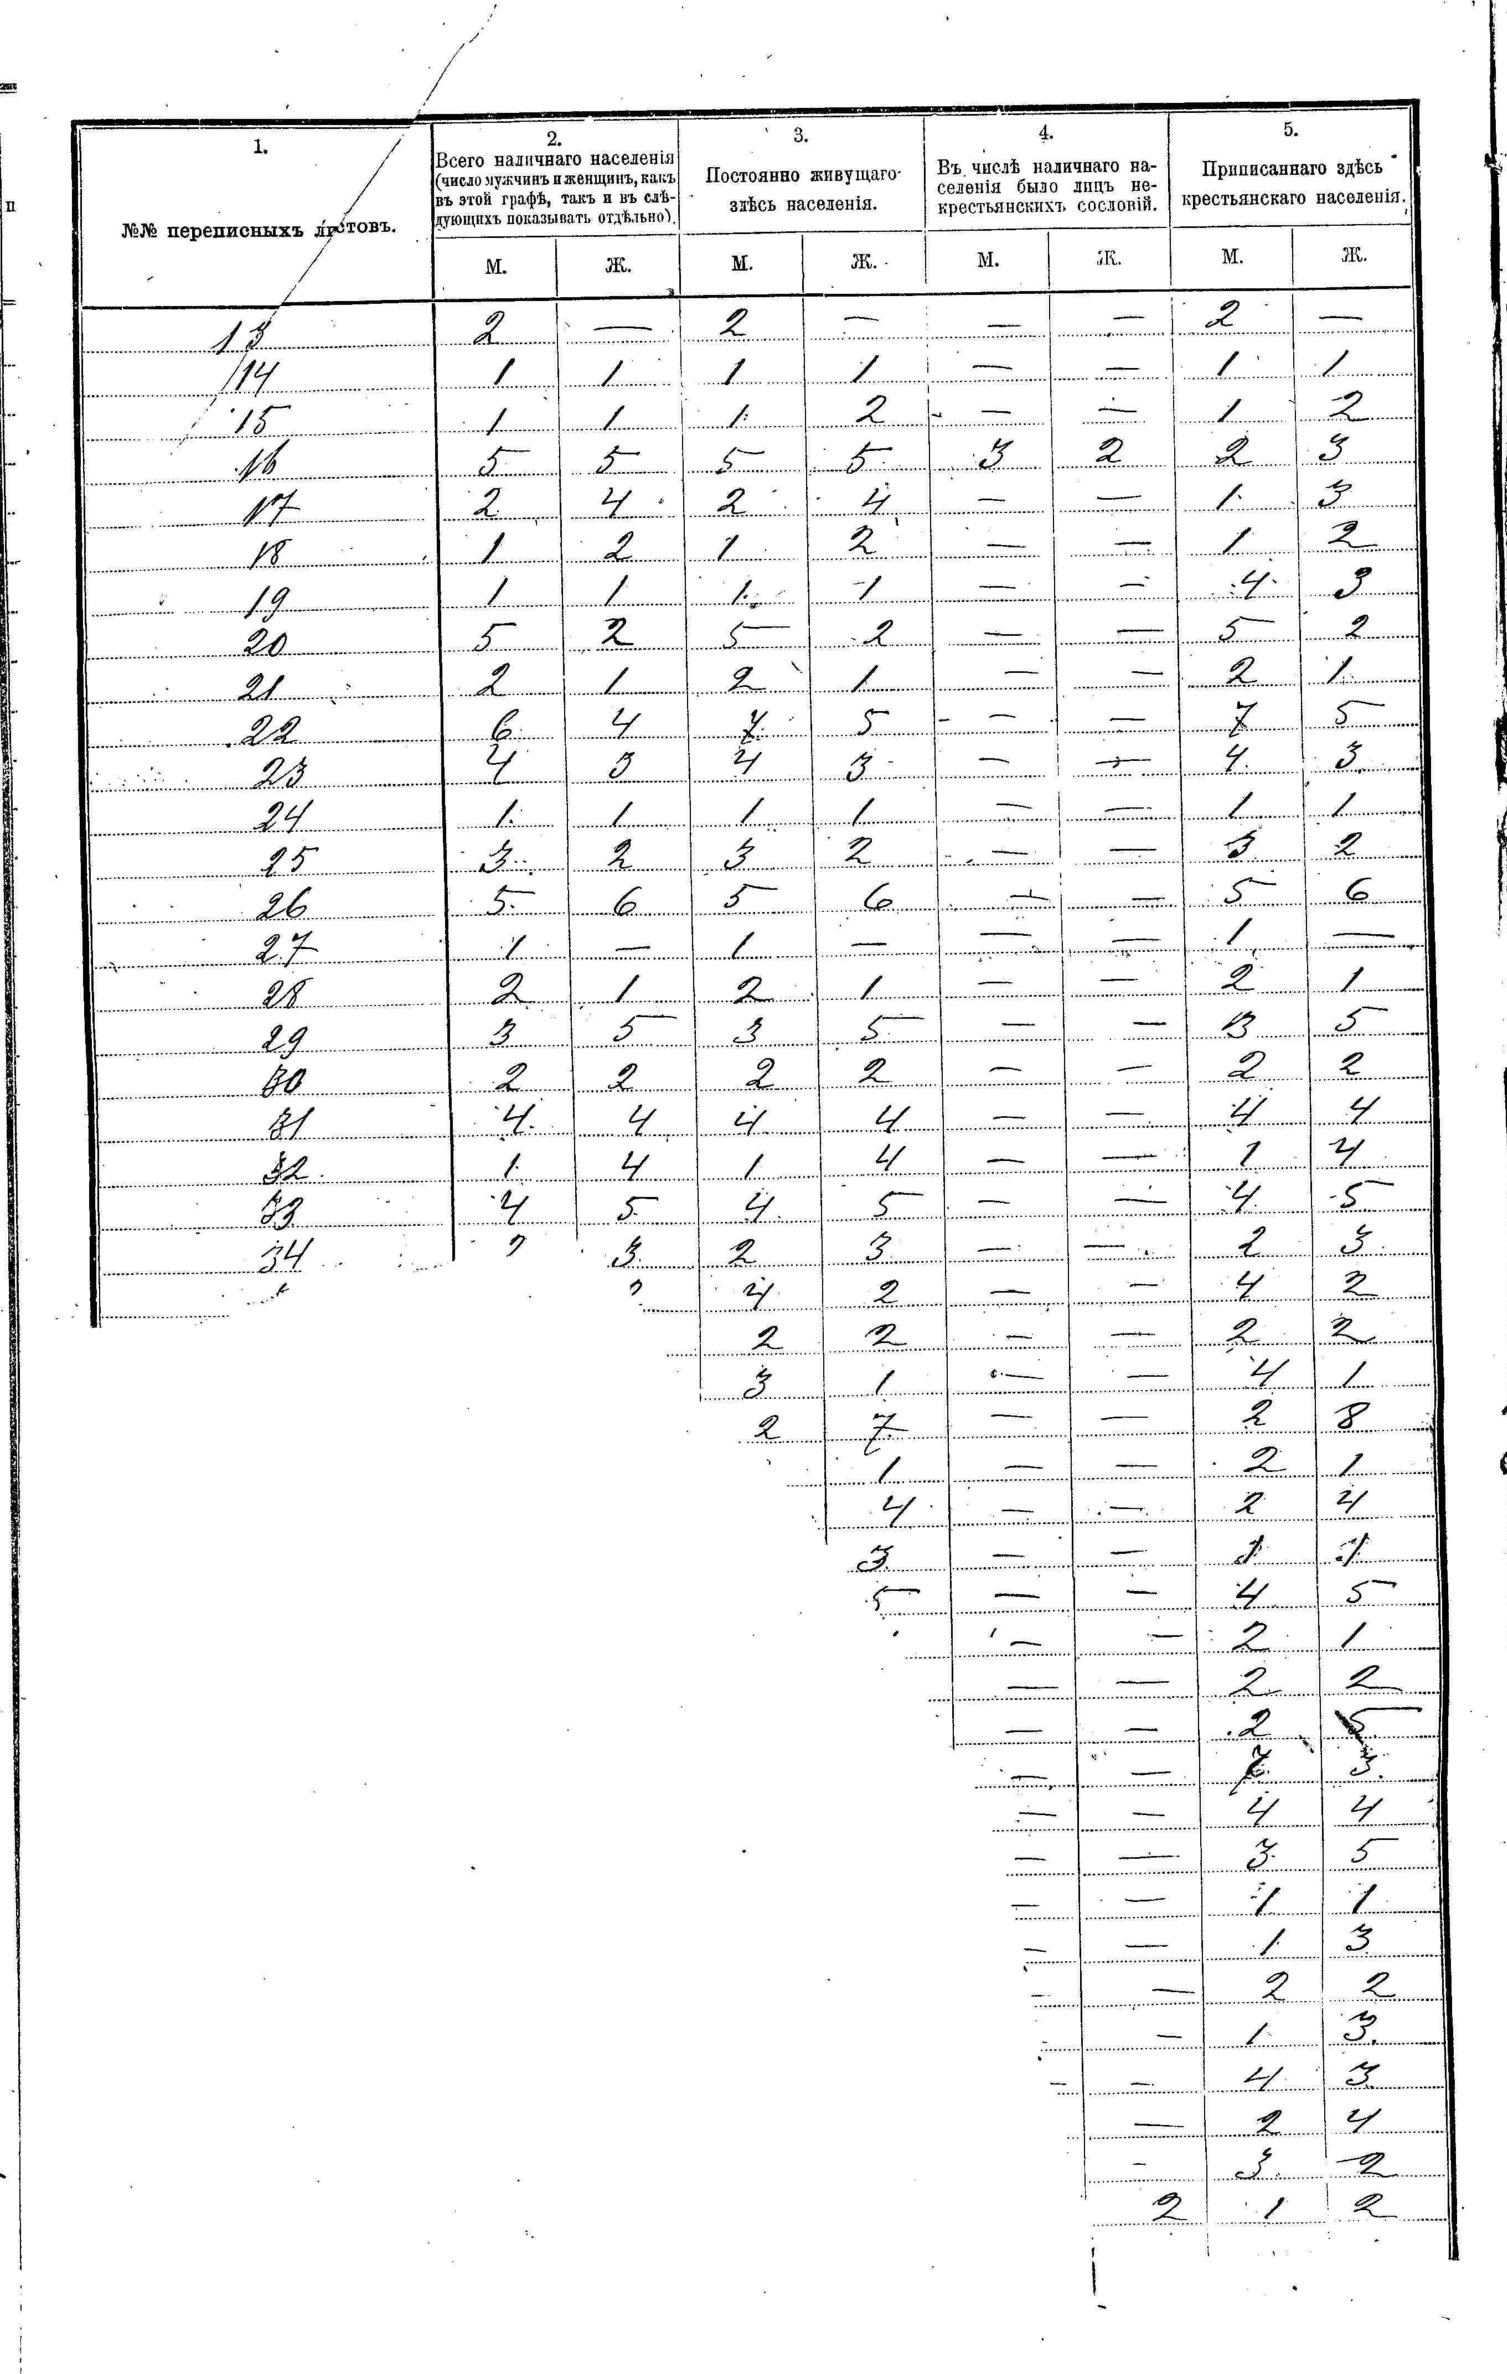 1. 2. 3. 4. 5.
№№ переписныхъ листовъ.
Всего наличнаго населенія
(число мужчинъ и женщинъ, какъ
въ этой графѣ, такъ и въ слѣ-
дующихъ показывать отдѣльно).
Постоянно живущаго
здѣсь населенія.
Въ числѣ наличнаго на-
селенія было лицъ не-
крестьянскихъ сословій.
Приписаннаго здѣсь
крестьянскаго населенія.
М. Ж. М. Ж. М. Ж. М. Ж.
13 2 — 2 — — — 2 —
14 1 1 1 1 — — 1 1
15 1 1 1 2 — — 1 2
16 5 5 5 5 3 2 2 3
17 2 4 2 4 — — 1 3
18 1 2 1 2 — — 1 2
19 1 1 1 1 — — 4 3
20 5 2 5 2 — — 5 2
21 2 1 2 1 — — 2 1
22 6 4 7 5 — — 7 5
23 4 3 4 3 — — 4 3
24 1 1 1 1 — — 1 1
25 3 2 3 2 — — 3 2
26 5 6 5 6 — — 5 6
27 1 — 1 — — — 1 —
28 2 1 2 1 — — 2 1
29 3 5 3 5 — — 3 5
30 2 2 2 2 — — 2 2
31 4 4 4 4 — — 4 4
32 1 4 1 4 — — 1 4
33 4 5 4 5 — — 4 5
34 3 2 3 — — 2 3
4 2 — — 4 2
2 2 — — 2 2
3 1 — — 4 1
2 7 — — 2 8
1 — — 2 1
4 — — 2 4
3 — —
5 — — 4 5
— — 2 1
— — 2 2
— — 2 5
— — 7 3
— — 4 4
— — 3 5
— — 1 1
— — 1 3
— — 2 2
— 1 3
— — 4 3
— 2 4
— 3 2
2 1 2